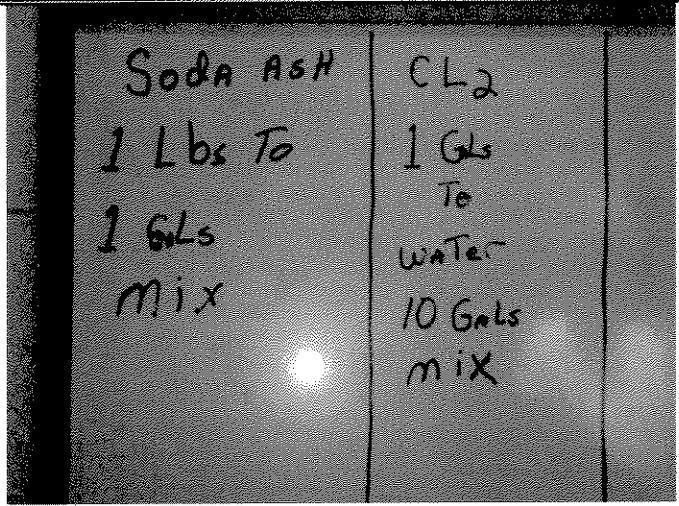 Soda Ash
1 Lbs To
1 GaLs
mix
CL2
1 Gals
To
Water
10 GaLs
mix